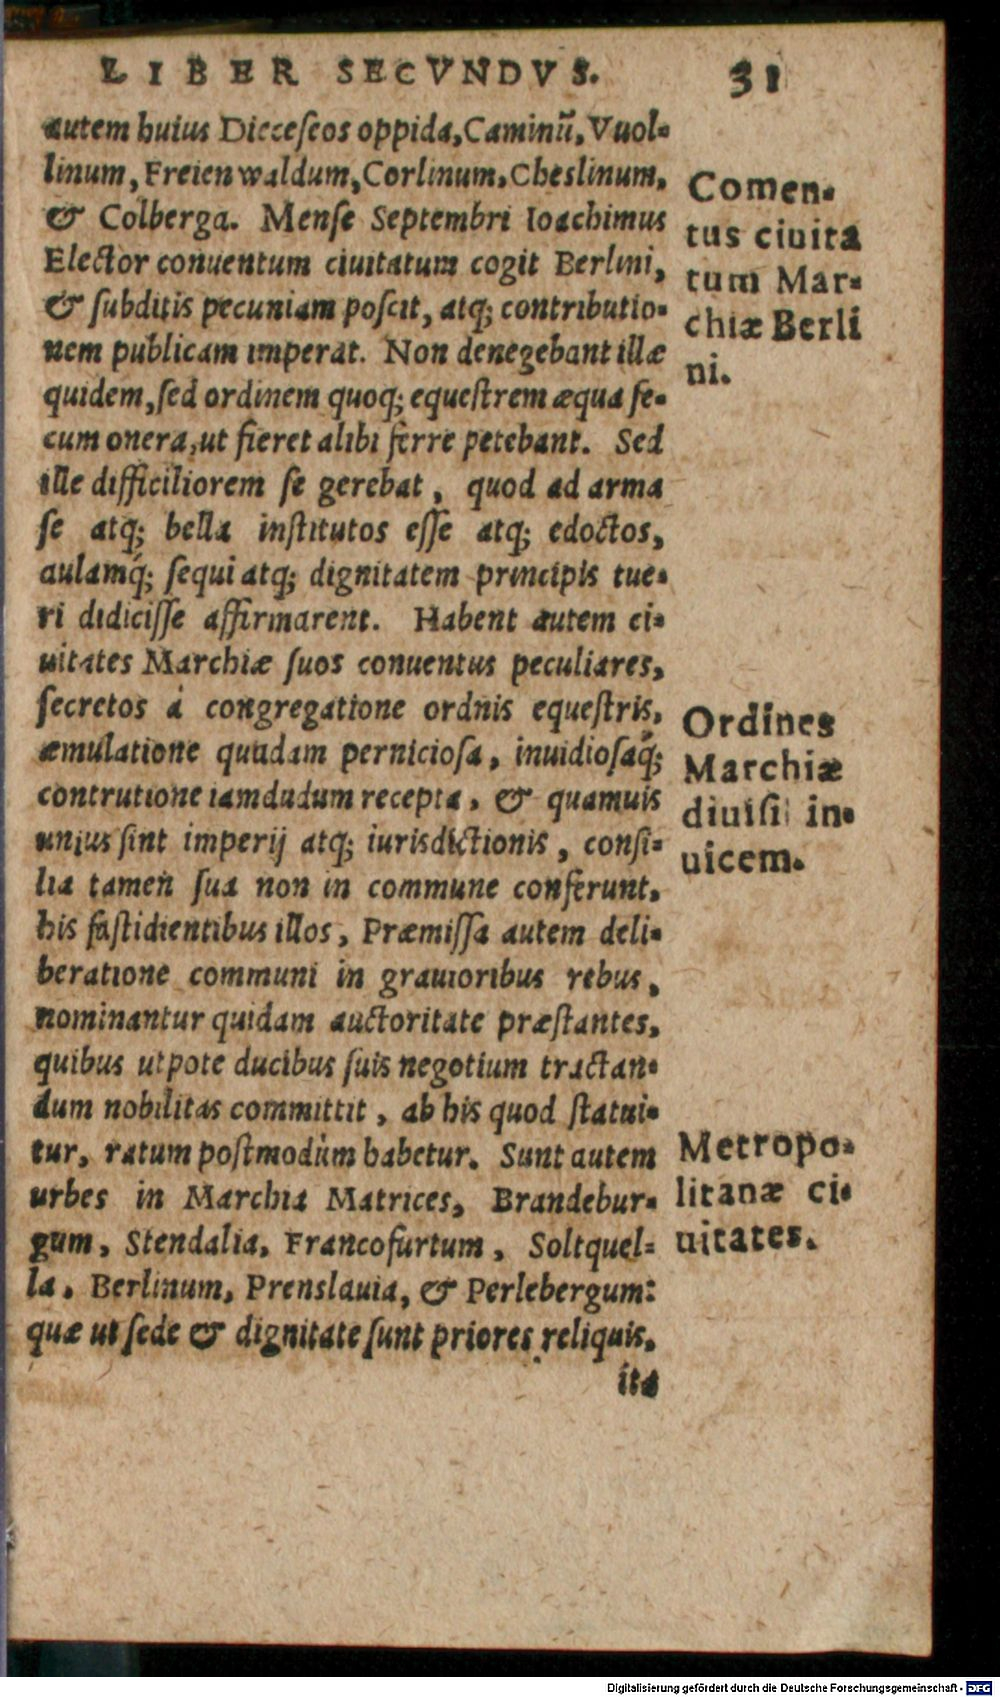 LIBER SECVNDVS. 31
autem huius Dieceseos oppida, Caminũ, Vuol-
linum, Freienwaldum, Corlinum, Cheslinum,
& Colberga. Mense Septembri Ioachimus
Elector conuentum ciuitatum cogit Berlini,
& subditis pecuniam poscit, atq; contributio-
nem publicam imperat. Non denegebant illæ
quidem, sed ordinem quoq; equestrem æqua se-
cum onera, ut fieret alibi ferre petebant. Sed
ille difficiliorem se gerebat, quod ad arma
se atq; bella institutos esse atq; edoctos,
aulamq́; sequi atq; dignitatem principis tue-
ri didicisse affirmarent. Habent autem ci-
uitates Marchiæ suos conuentus peculiares,
secretos à congregatione ordnis equestris,
æmulatione quadam perniciosa, inuidiosaq́;
contrutione iamdudum recepta, & quamuis
unius sint imperij atq; iurisdictionis, consi-
lia tamen sua non in commune conferunt,
his fastidientibus illos, Præmissa autem deli-
beratione communi in grauioribus rebus,
nominantur quidam auctoritate præstantes,
quibus utpote ducibus suis negotium tractan-
dum nobilitas committit, ab his quod statui-
tur, ratum postmodùm habetur. Sunt autem
urbes in Marchia Matrices, Brandebur-
gum, Stendalia, Francofurtum, Soltquel-
la, Berlinum, Prenslauia, & Perlebergum:
quæ ut sede & dignitate sunt priores reliquis,
ita
Comen-
tus ciuita
tum Mar-
chiæ Berli
ni.
Ordines
Marchiæ
diuisi in-
uicem.
Metropo-
litanæ ci-
uitates.
Digitalisierung gefördert durch die Deutsche Forschungsgemeinschaft - DFG